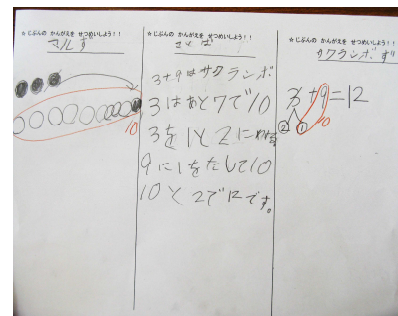 ☆じぶんの かんがえを せつめいしよう！！
マルず
10
☆じぶんの かんがえを せつめいしよう！！
ことば
3+9はサクランボ
3はあと7で10
3を1と2にわける
9に1をたして10
10と2で12です。
☆じぶんの かんがえを せつめいしよう！！
サクランボず
3+9=12
② ①
10